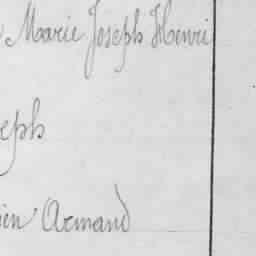 Marie Joseph Henri
eph
ien Armand